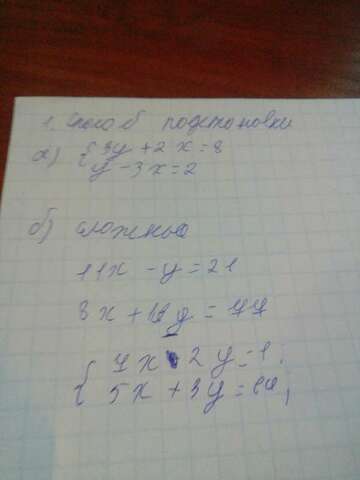 1. Способ подстановки
а) { 3y + 2x = 8
y - 3x = 2
б) сложные
11x - y = 21
8x + y =
{ 7x 2y = 1;
5x + 3y =